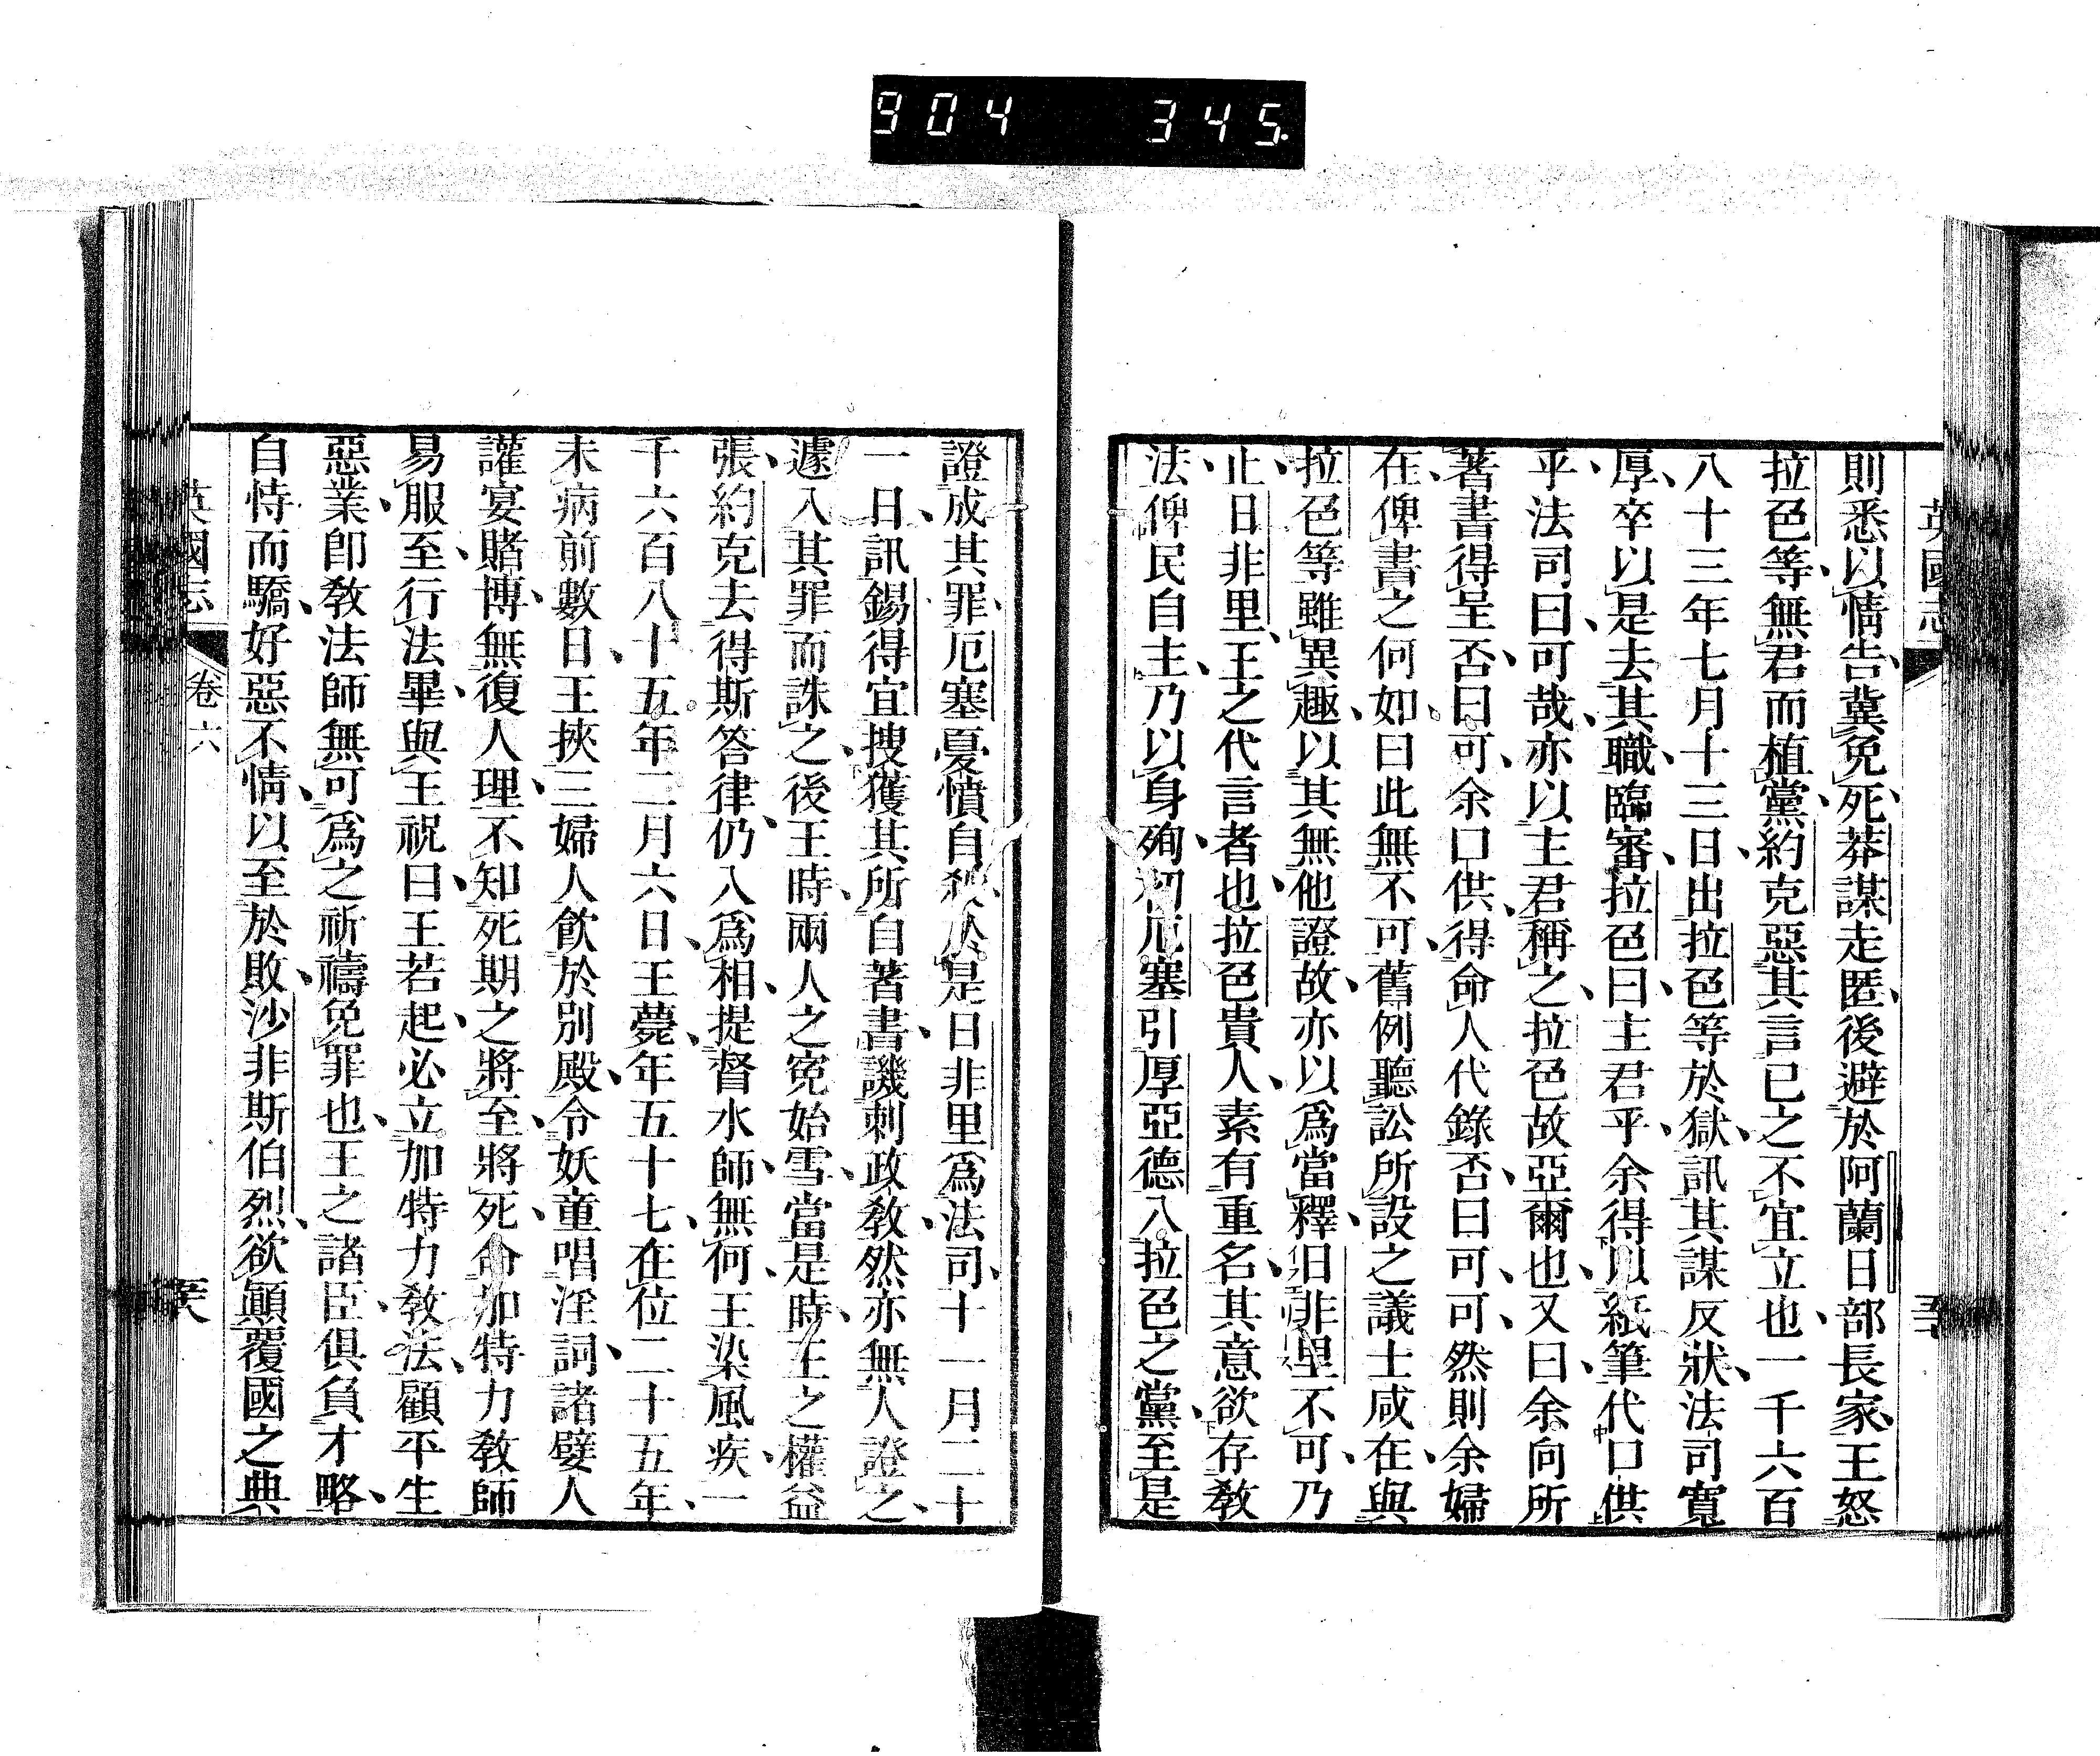 904 345
英國志
則悉以情告冀免死莽謀走匿後避於阿蘭日部長家王怒
拉色等無君而植黨約克惡其言已之不宜立也一千六百
八十三年七月十三日出拉色等於獄訊其謀反狀法司寬
厚卒以是去其職臨審拉色曰主君乎余得以紙筆代口供
乎法司曰可哉亦以主君稱之拉色故亞爾也又曰余向所
著書得呈否曰可余口供得命人代錄否曰可可然則余婦
在俾書之何如曰此無不可舊例聽訟所設之議士咸在與
拉色等雖異趣以其無他證故亦以爲當釋日非里不可乃
止日非里王之代言者也拉色貴人素有重名其意欲存敎
法俾民自主乃以身殉初厄塞引厚亞德入拉色之黨至是
證成其罪厄塞憂憤自殺於是日非里爲法司十一月二十
一日訊錫得宜搜獲其所自著書譏刺政敎然亦無人證之
遽入其罪而誅之後王時兩人之寃始雪當是時王之權益
張約克去得斯答律仍入爲相提督水師無何王染風疾一
千六百八十五年二月六日王薨年五十七在位二十五年
未病前數日王挾三婦人飮於別殿令妖童唱淫詞諸嬖人
讙宴賭博無復人理不知死期之將至將死命加特力敎師
易服至行法畢與王祝曰王若起必立加特力敎法顧平生
惡業卽敎法師無可爲之祈禱免罪也王之諸臣俱負才略
自恃而驕好惡不情以至於敗沙非斯伯烈欲顚覆國之典
英國志
卷六